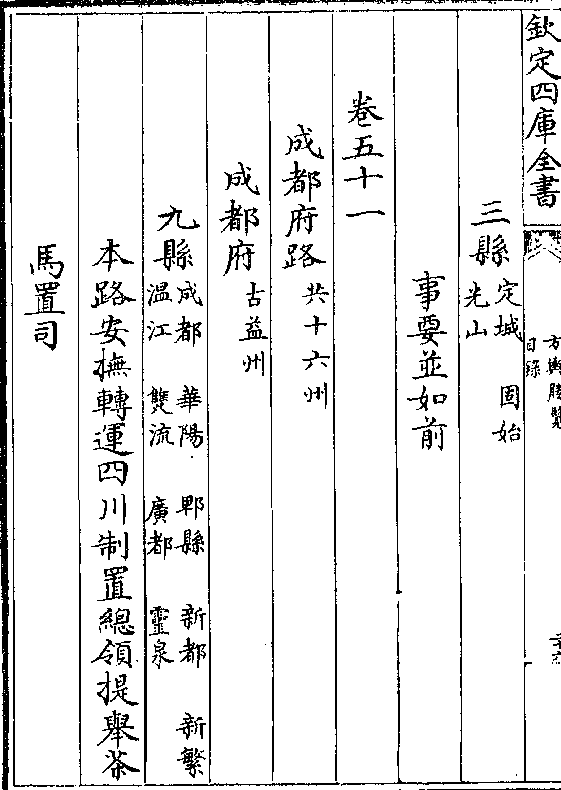 欽定四庫全書
方輿勝覽
目錄
三縣 定城 固始
光山
事要並如前
卷五十一
成都府路 共十六州
成都府 古益州
九縣 成都 華陽 郫縣 新都 新繁
溫江 雙流 廣都 靈泉
本路安撫轉運四川制置總領提舉茶
馬置司